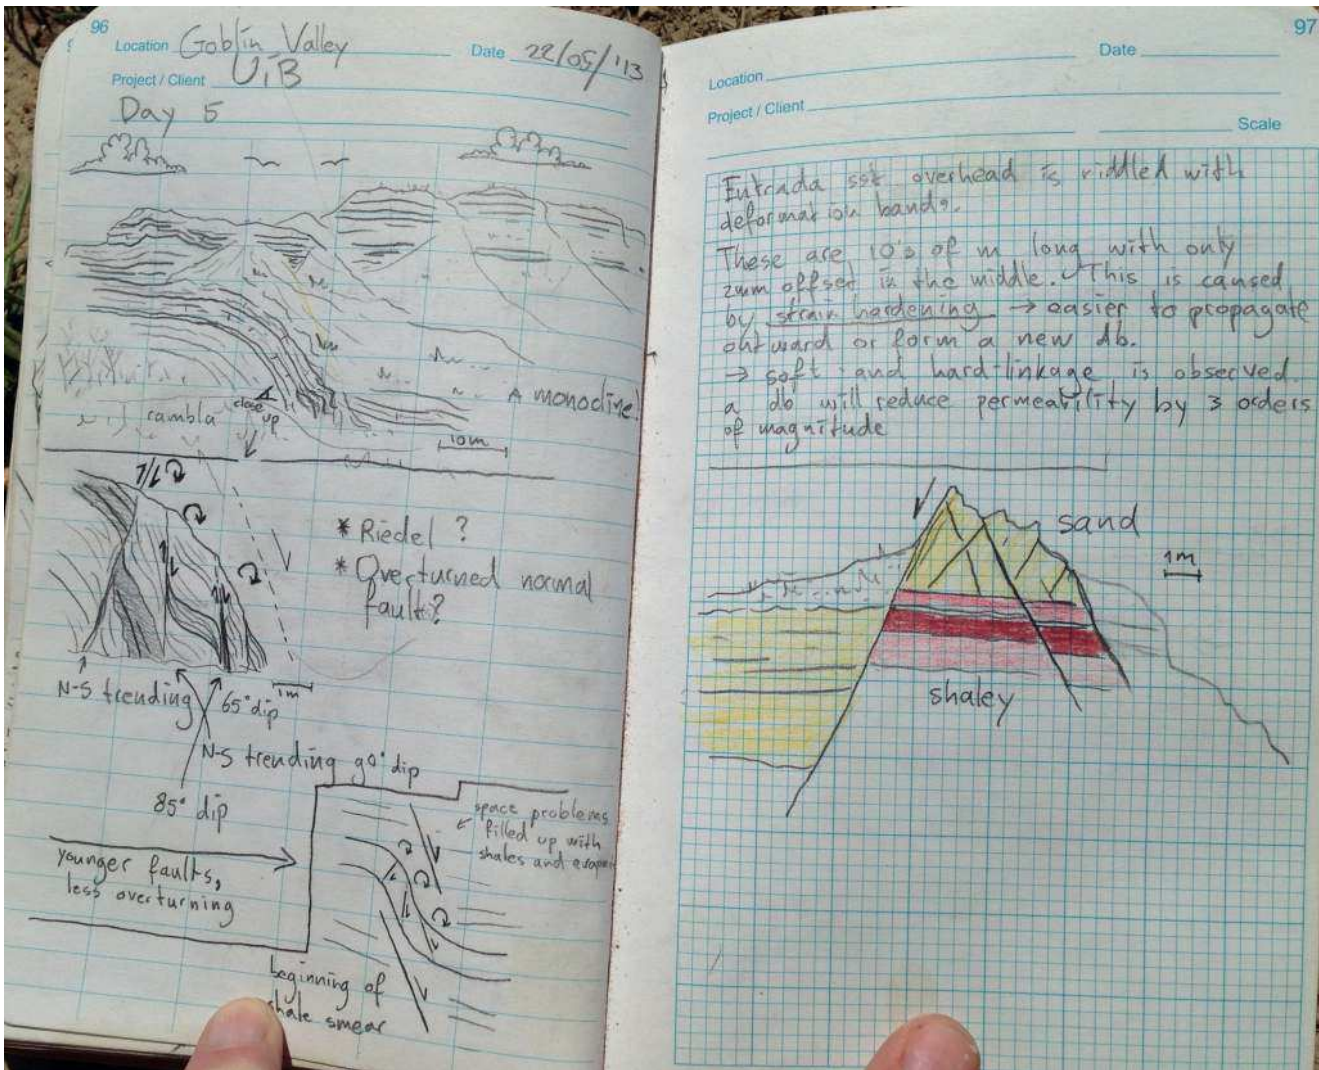 96
Location Goblin Valley Date 22/05/'13
Project / Client UiB
Day 5
A monocline!
rambla
close up
10m
* Riedel ?
* Overturned normal
fault?
1m
N-S trending
65° dip
N-S trending 90° dip
85° dip
younger faults,
less overturning
space problems
filled up with
shales and
beginning of
shale smear
97
Location Date
Project / Client
Scale
Entrada sst overhead is riddled with
deformation bands.
These are 10's of m long with only
2mm offset in the middle. This is caused
by strain hardening → easier to propagate
outward or form a new db.
→ soft and hard-linkage is observed.
a db will reduce permeability by 3 orders
of magnitude
sand
1m
shaley